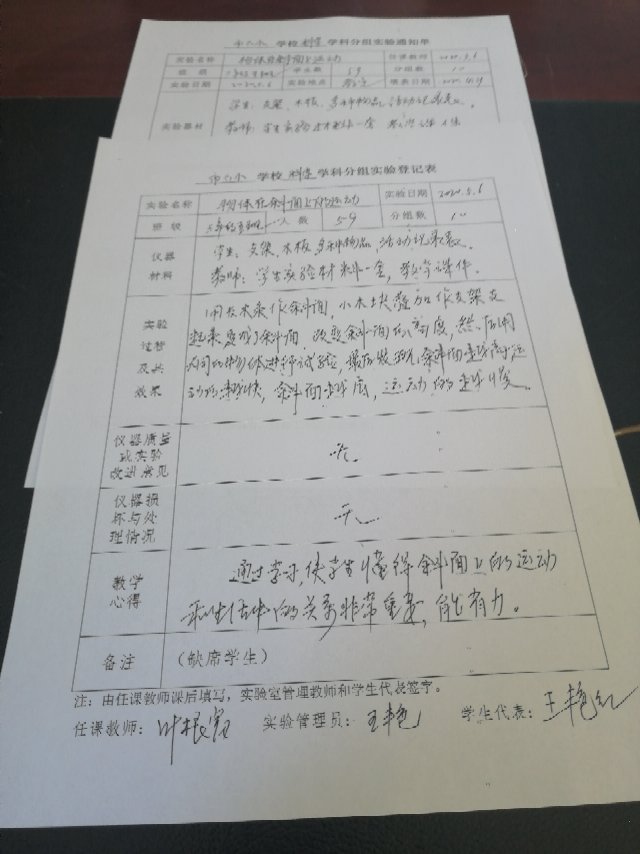 市六小 学校 科学 学科分组实验通知单
实验名称 物体在斜面上运动 任课教师
班级 学生数 59 分组数 10
实验日期 实验地点 填表日期
学生: 支架、木板、多种物品、活动记录表。
实验器材 教师: 学生实验材料一套
市六小 学校 科学 学科分组实验登记表
实验名称 物体在斜面上的运动 实验日期 2020.5.6
班级 人数 59 分组数 10
仪器 学生: 支架、木板、多种物品、活动记录表。
材料 教师: 学生实验材料一套, 教学课件。
实验 用长木条作斜面, 小木块叠加作支架支
过程 起来变成了斜面, 改变斜面的高度, 然后用
及其 不同的物体进行试验, 最后发现: 斜面越高运
效果 动的越快, 斜面越底, 运动的越慢。
仪器质量
或实验
改进意见 无。
仪器损
坏与处
理情况 无
教学 通过学习, 使学生懂得斜面上的运动
心得 和生活中的关系非常重要,
备注 (缺席学生)
注: 由任课教师课后填写, 实验室管理教师和学生代表签字。
任课教师: 实验管理员: 王艳 学生代表: 王艳红